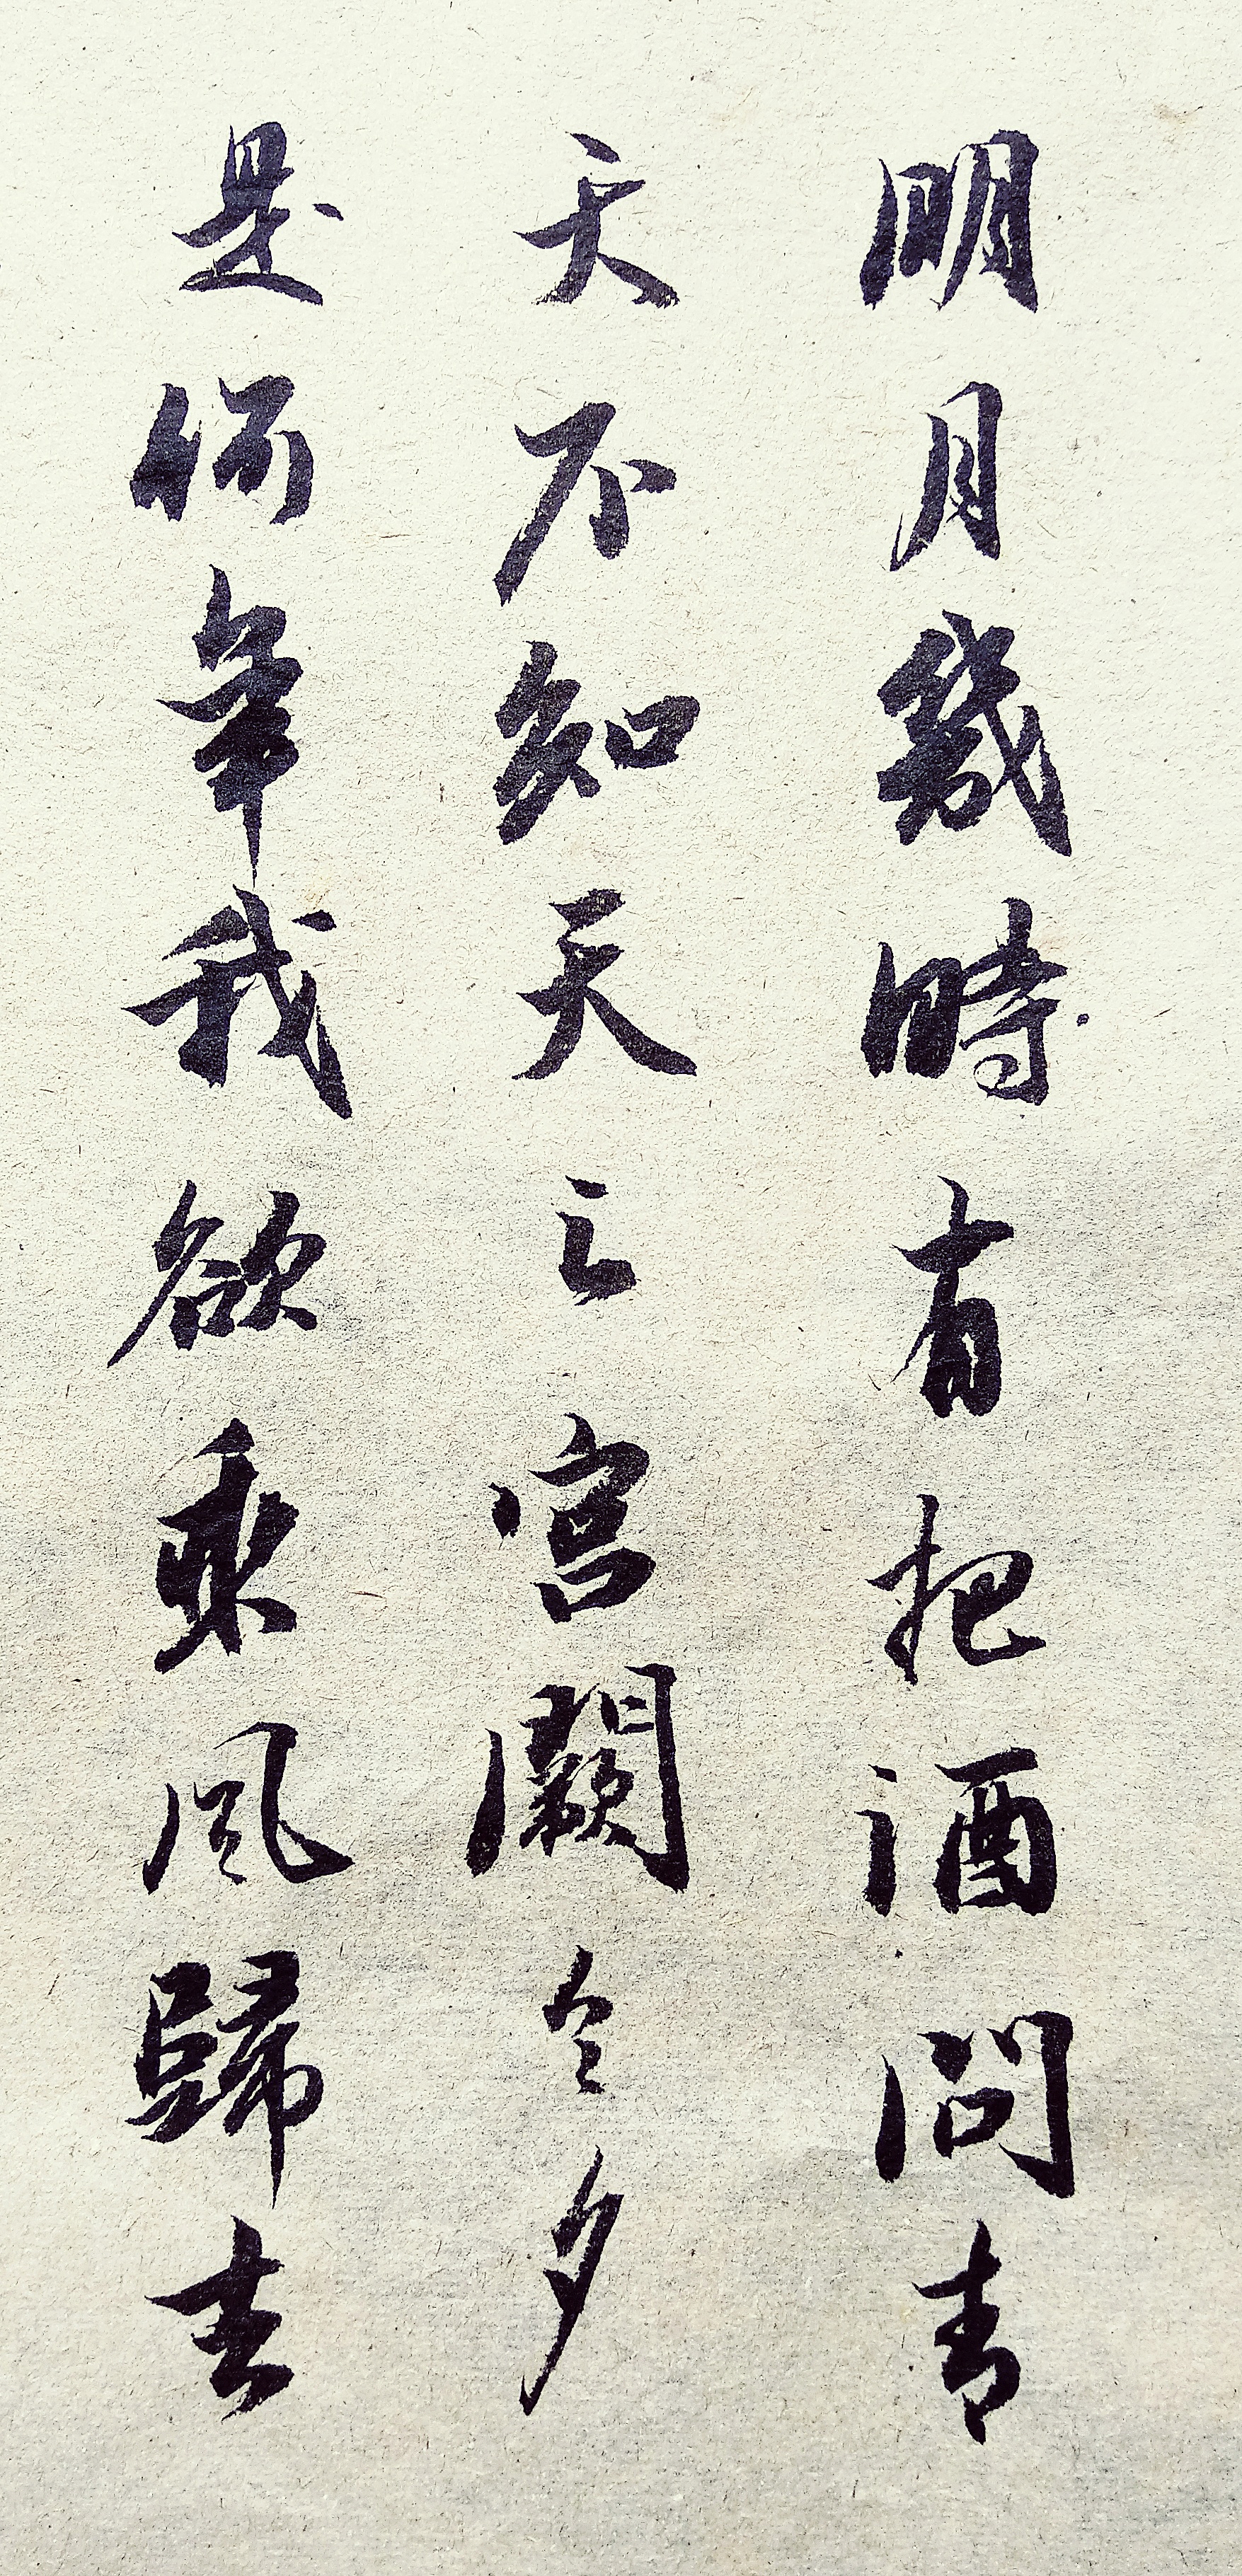 明月幾時有把酒問青
天不知天之宮闕今夕
是何年我欲乘風歸去